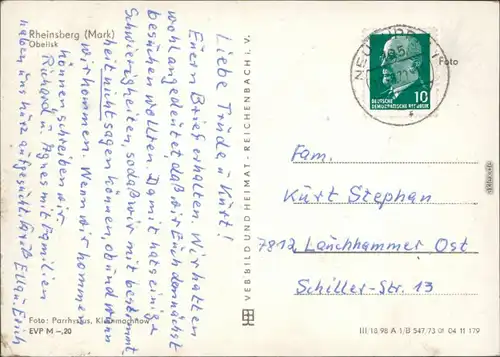 Rheinsberg (Mark)
Obelisk
Liebe Trude u. Kurt!
Euern Brief erhalten. Wir hatten
wohl angedeutet, daß wir Euch demnächst
besuchen wollten. Damit hat's einige
Schwierigkeiten, sodaß wir mit bestimmt
heit nicht sagen können, ob und wann
wir kommen. Wenn wir kommen
können schreiben wir
Richard u. Agnes mit Familien
haben uns kurz aufgesucht. Gruß Ella u. Erich
Foto: Parrhysius, Kleinmachnow
EVP M –,20
VEB BILD UND HEIMAT · REICHENBACH I. V.
Foto
DEUTSCHE
DEMOKRATISCHE REPUBLIK
10
Fam.
Kurt Stephan
7812 Lauchhammer Ost
Schiller-Str. 13
III 18 98 A 1/B 547/73 01 04 11 179